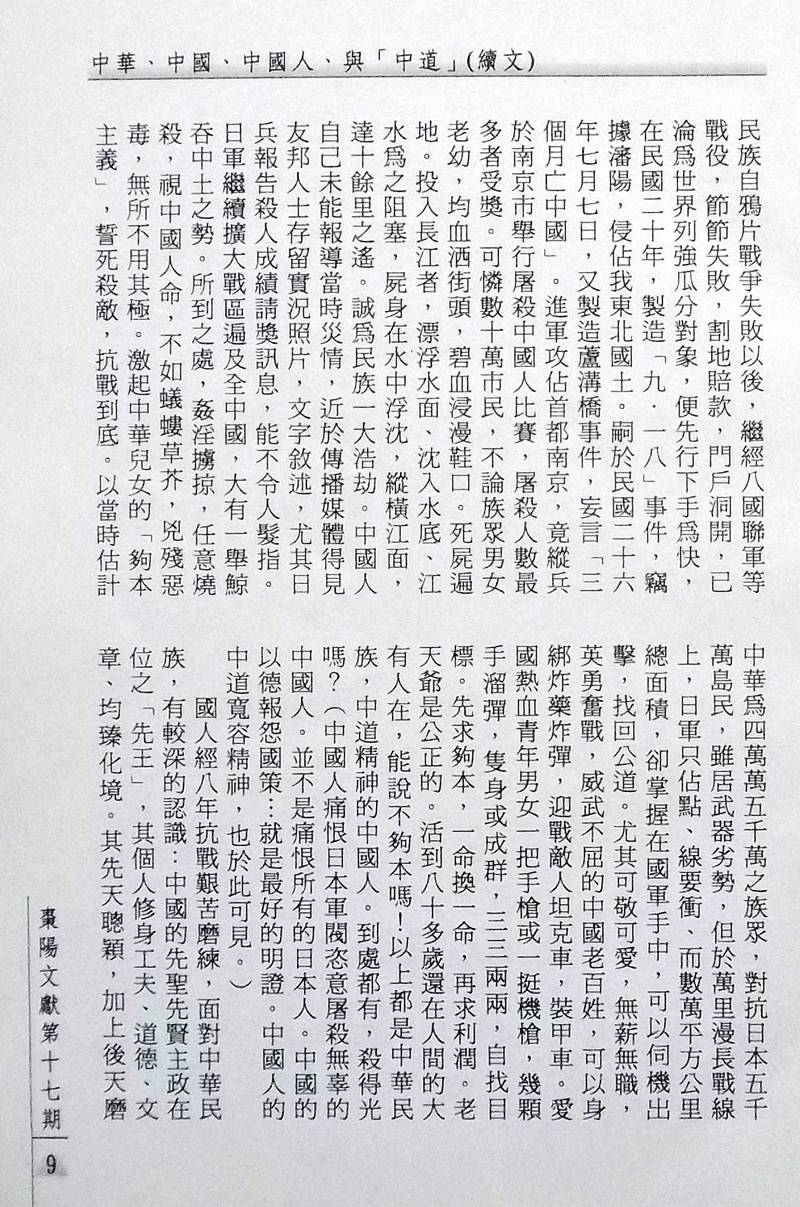 中華、中國、中國人、與「中道」(續文)
民族自鴉片戰爭失敗以後，繼經八國聯軍等
戰役，節節失敗，割地賠款，門戶洞開，已
淪為世界列強瓜分對象，便先行下手為快，
在民國二十年，製造「九．一八」事件，竊
據瀋陽，侵佔我東北國土。嗣於民國二十六
年七月七日，又製造蘆溝橋事件，妄言「三
個月亡中國」。進軍攻佔首都南京，竟縱兵
於南京市舉行屠殺中國人比賽，屠殺人數最
多者受獎。可憐數十萬市民，不論族眾男女
老幼，均血洒街頭，碧血浸漫鞋口。死屍遍
地。投入長江者，漂浮水面、沈入水底、江
水為之阻塞，屍身在水中浮沈，縱橫江面，
達十餘里之遙。誠為民族一大浩劫。中國人
自己未能報導當時災情，近於傳播媒體得見
友邦人士存留實況照片，文字敘述，尤其日
兵報告殺人成績請獎訊息，能不令人髮指。
日軍繼續擴大戰區遍及全中國，大有一舉鯨
吞中土之勢。所到之處，姦淫擄掠，任意燒
殺，視中國人命，不如蟻螻草芥，兇殘惡
毒，無所不用其極。激起中華兒女的「夠本
主義」，誓死殺敵，抗戰到底。以當時估計
中華為四萬萬五千萬之族眾，對抗日本五千
萬島民，雖居武器劣勢，但於萬里漫長戰線
上，日軍只佔點、線要衝、而數萬平方公里
總面積，卻掌握在國軍手中，可以伺機出
擊，找回公道。尤其可敬可愛，無薪無職，
英勇奮戰，威武不屈的中國老百姓，可以身
綁炸藥炸彈，迎戰敵人坦克車，裝甲車。愛
國熱血青年男女一把手槍或一挺機槍，幾顆
手溜彈，隻身或成群，三三兩兩，自找目
標。先求夠本，一命換一命，再求利潤。老
天爺是公正的。活到八十多歲還在人間的大
有人在，能說不夠本嗎！以上都是中華民
族，中道精神的中國人。到處都有，殺得光
嗎？（中國人痛恨日本軍閥恣意屠殺無辜的
中國人。並不是痛恨所有的日本人。中國的
以德報怨國策…就是最好的明證。中國人的
中道寬容精神，也於此可見。）
國人經八年抗戰艱苦磨練，面對中華民
族，有較深的認識：中國的先聖先賢主政在
位之「先王」，其個人修身工夫、道德、文
章、均臻化境。其先天聰穎，加上後天磨
棗陽文獻第十七期
9